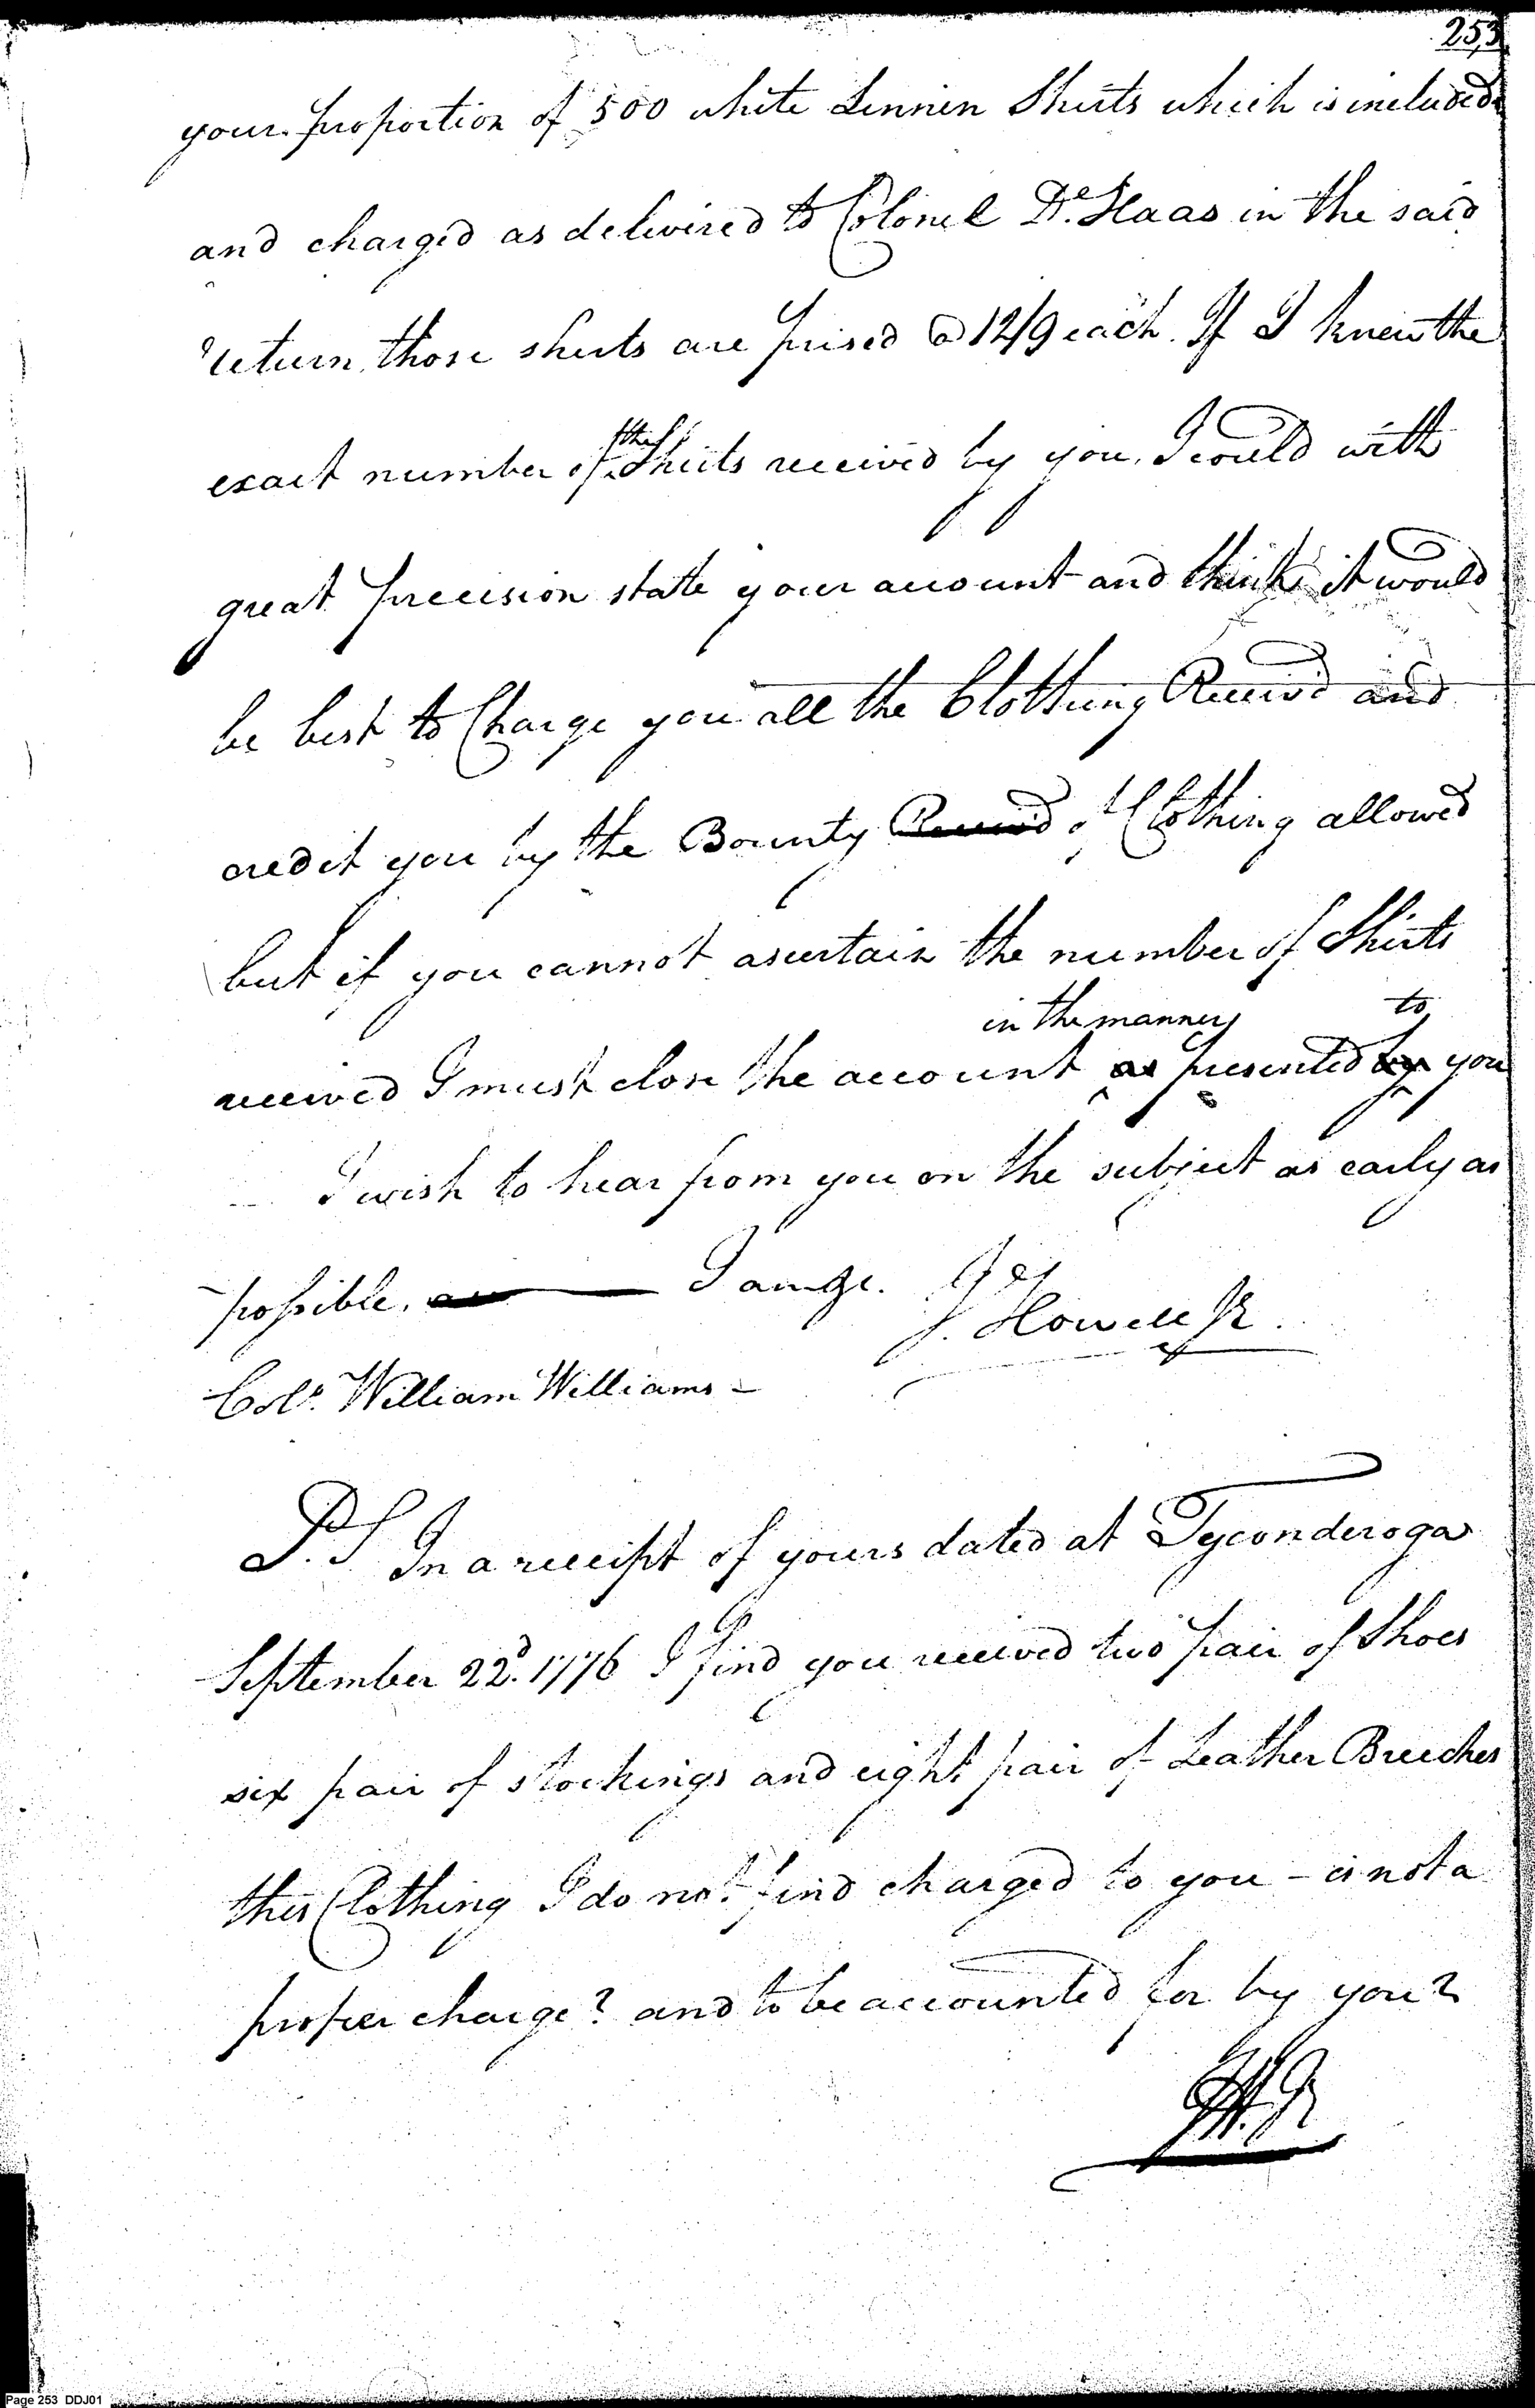 253
your proportion of 500 white Linnin Shirts which is included
and charged as delivered to Colonel De Haas in the said
return, those shirts are prised @ 12/9 each. If I knew the
exact number of the Shirts received by you, I could with
great precision state your account and think it would
be best to Charge you all the Clothing Receiv'd and
credit you by the Bounty Receiv'd of Clothing allowed
but if you cannot ascertain the number of Shirts
in the manner to
received I must close the account as presented by you
I wish to hear from you on the subject as early as
possible. as I am &c.
J. Howell Jr.
Colo. William Williams -
P.S. In a receipt of yours dated at Tyconderoga
September 22d. 1776 I find you received two pair of Shoes
six pair of stockings and eight pair of Leather Breeches
this Clothing I do not find charged to you - is not a
proper charge? and to be accounted for by you?
J.H. Jr
Page 253 DDJ01